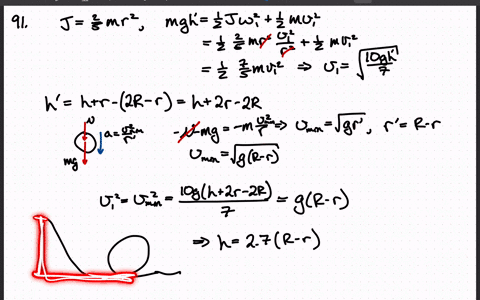 91. J = 2/5 mr², mgh' = 1/2 Jω₁² + 1/2 mv₁²
= 1/2 2/5 mr² v₁²/r² + 1/2 mv₁²
= 1/2 7/5 mv₁² ⇒ v₁ = √(10gh'/7)
h' = h+r-(2R-r) = h+2r-2R
N
a = v²min/r'
mg
-N-mg = -m v²min/r' ⇒ vmin = √gr', r' = R-r
vmin = √g(R-r)
v₁² = v²min = 10g(h+2r-2R)/7 = g(R-r)
⇒ h = 2.7(R-r)